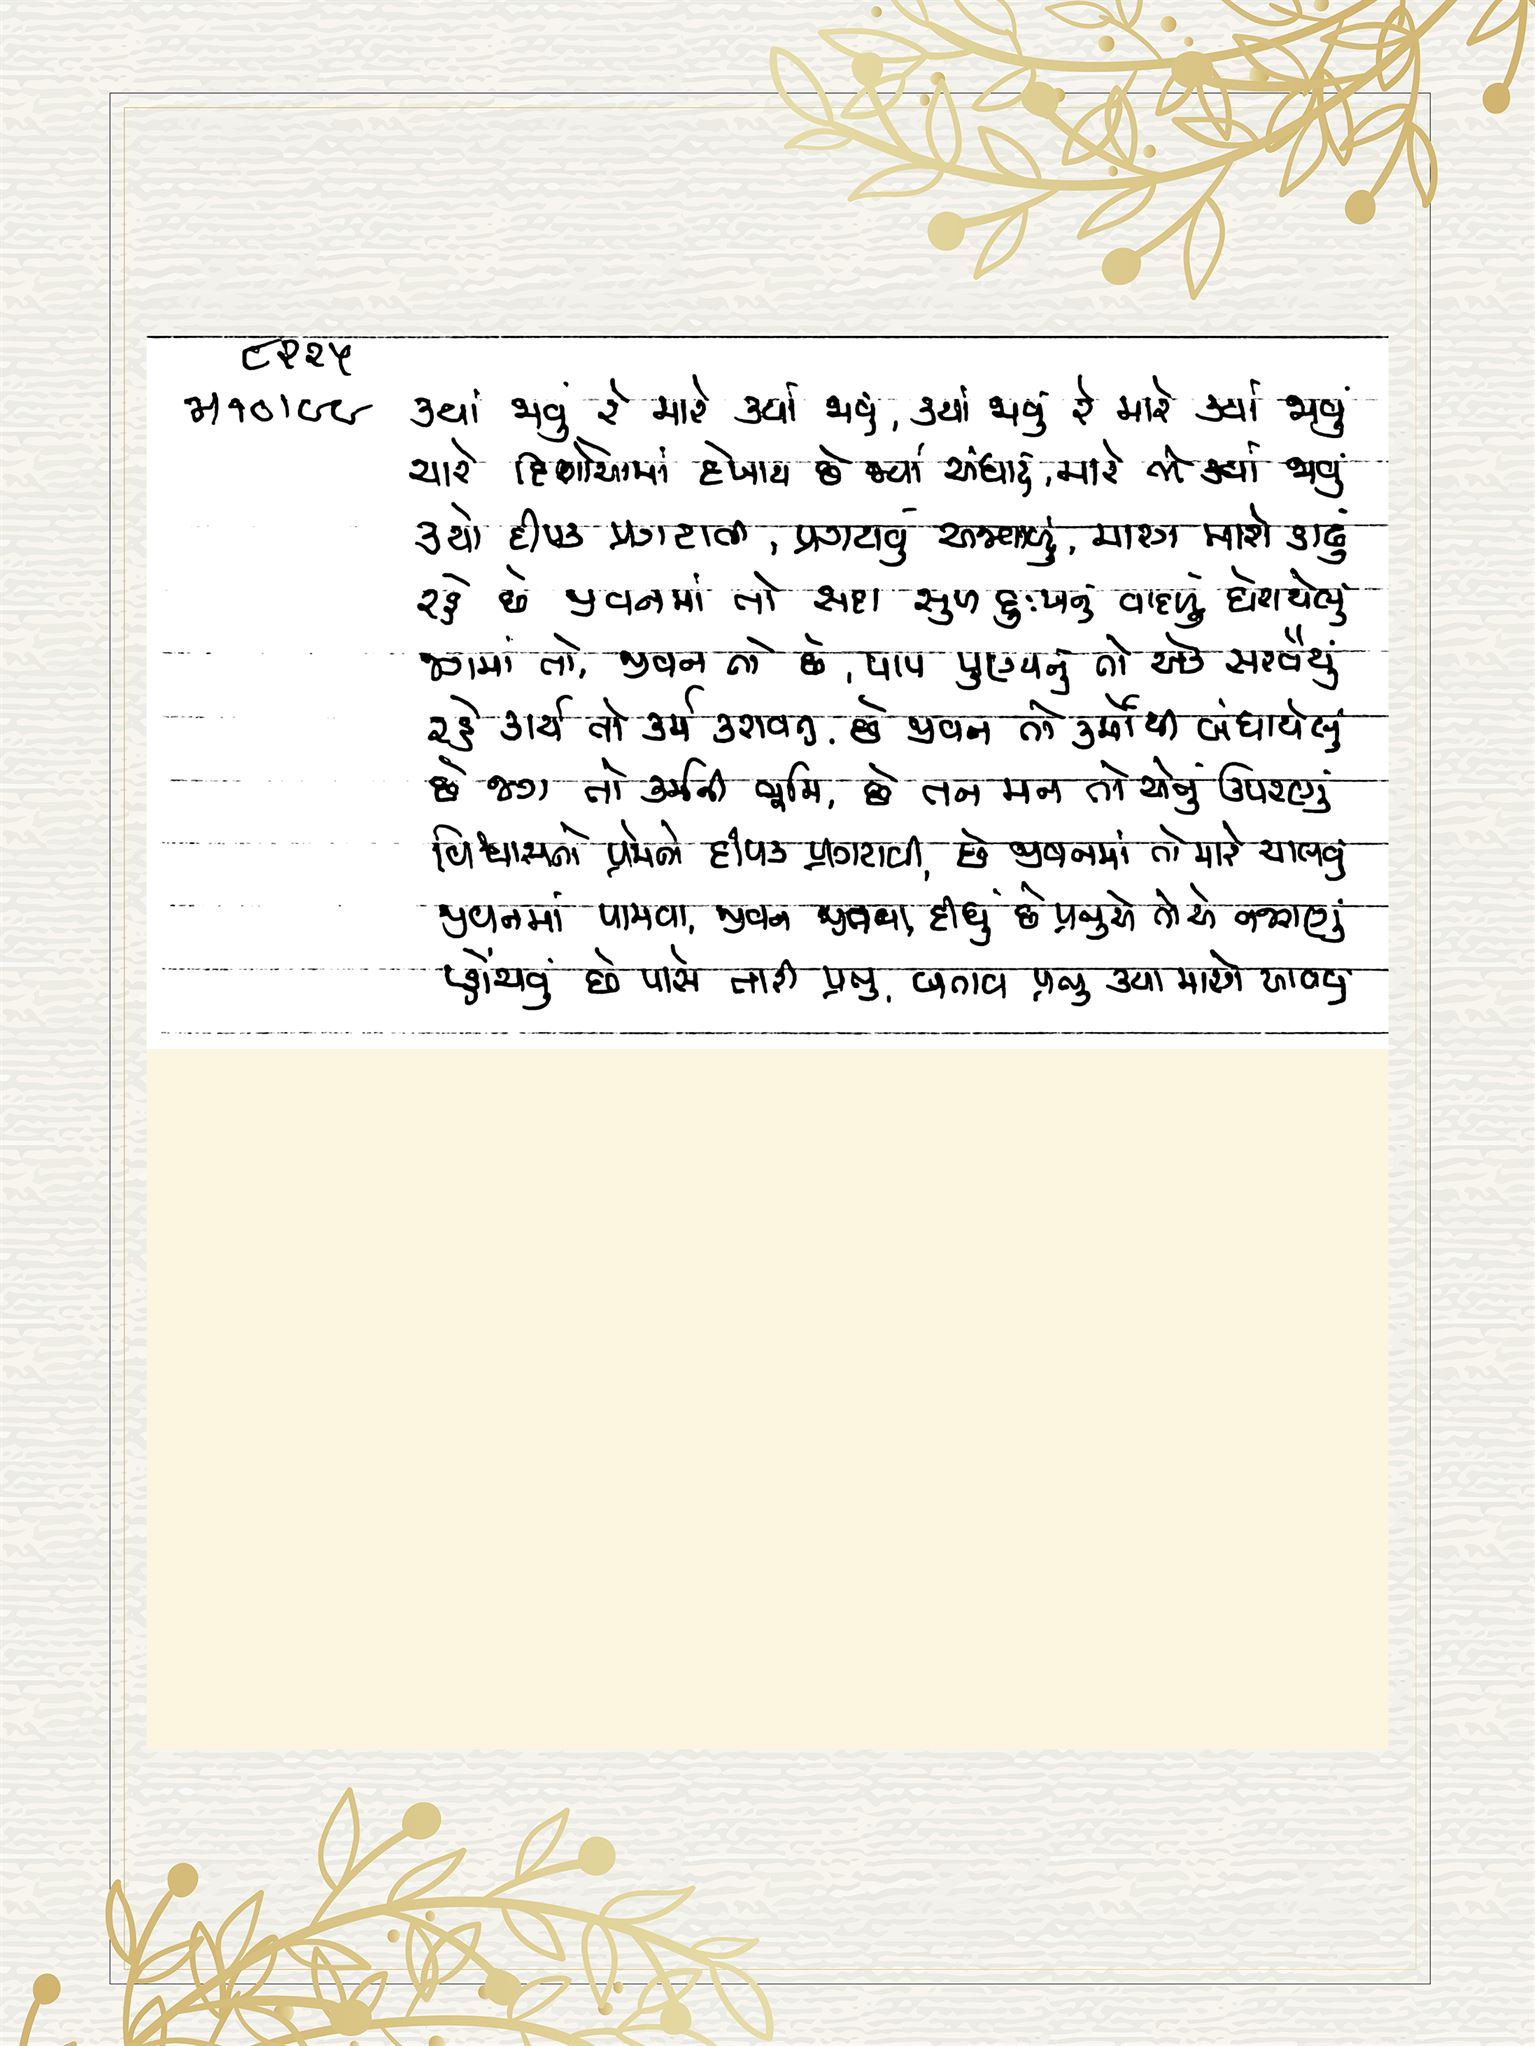 ૮૨૨૫
ક્યાં જાવું રે મારે ક્યાં જાવું, ક્યાં જાવું રે મારે ક્યાં જાવું
ચારે દિશાઓમાં દેખાય છે જ્યાં અંધારું, મારે તો ક્યાં જાવું
ક્યો દીપક પ્રગટાવી, પ્રગટાવું અજવાળું, મારગ મારો કાઢું
રહે છે જીવનમાં તો સદા સુખ દુઃખનું વાદળું ઘેરાયેલું
જગમાં તો, જીવન તો છે, પાપ પુણ્યનું તો એક સરવૈયું
રહે કાર્ય તો કર્મ કરાવતુ. છે જીવન તો કર્મોથી બંધાયેલું
છે જગ તો કર્મની ભૂમિ, છે તન મન તો એનું ઉપરણું
વિશ્વાસનો પ્રેમનો દીપક પ્રગટાવી, છે જીવનમાં તો મારે ચાલવું
જીવનમાં પામવા, જીવન જીવવા, દીધું છે પ્રભુએ તો એ નજરાણું
પ્હોંચવું છે પાસે તારી પ્રભુ, બતાવ પ્રભુ ક્યા મારગે આવવું